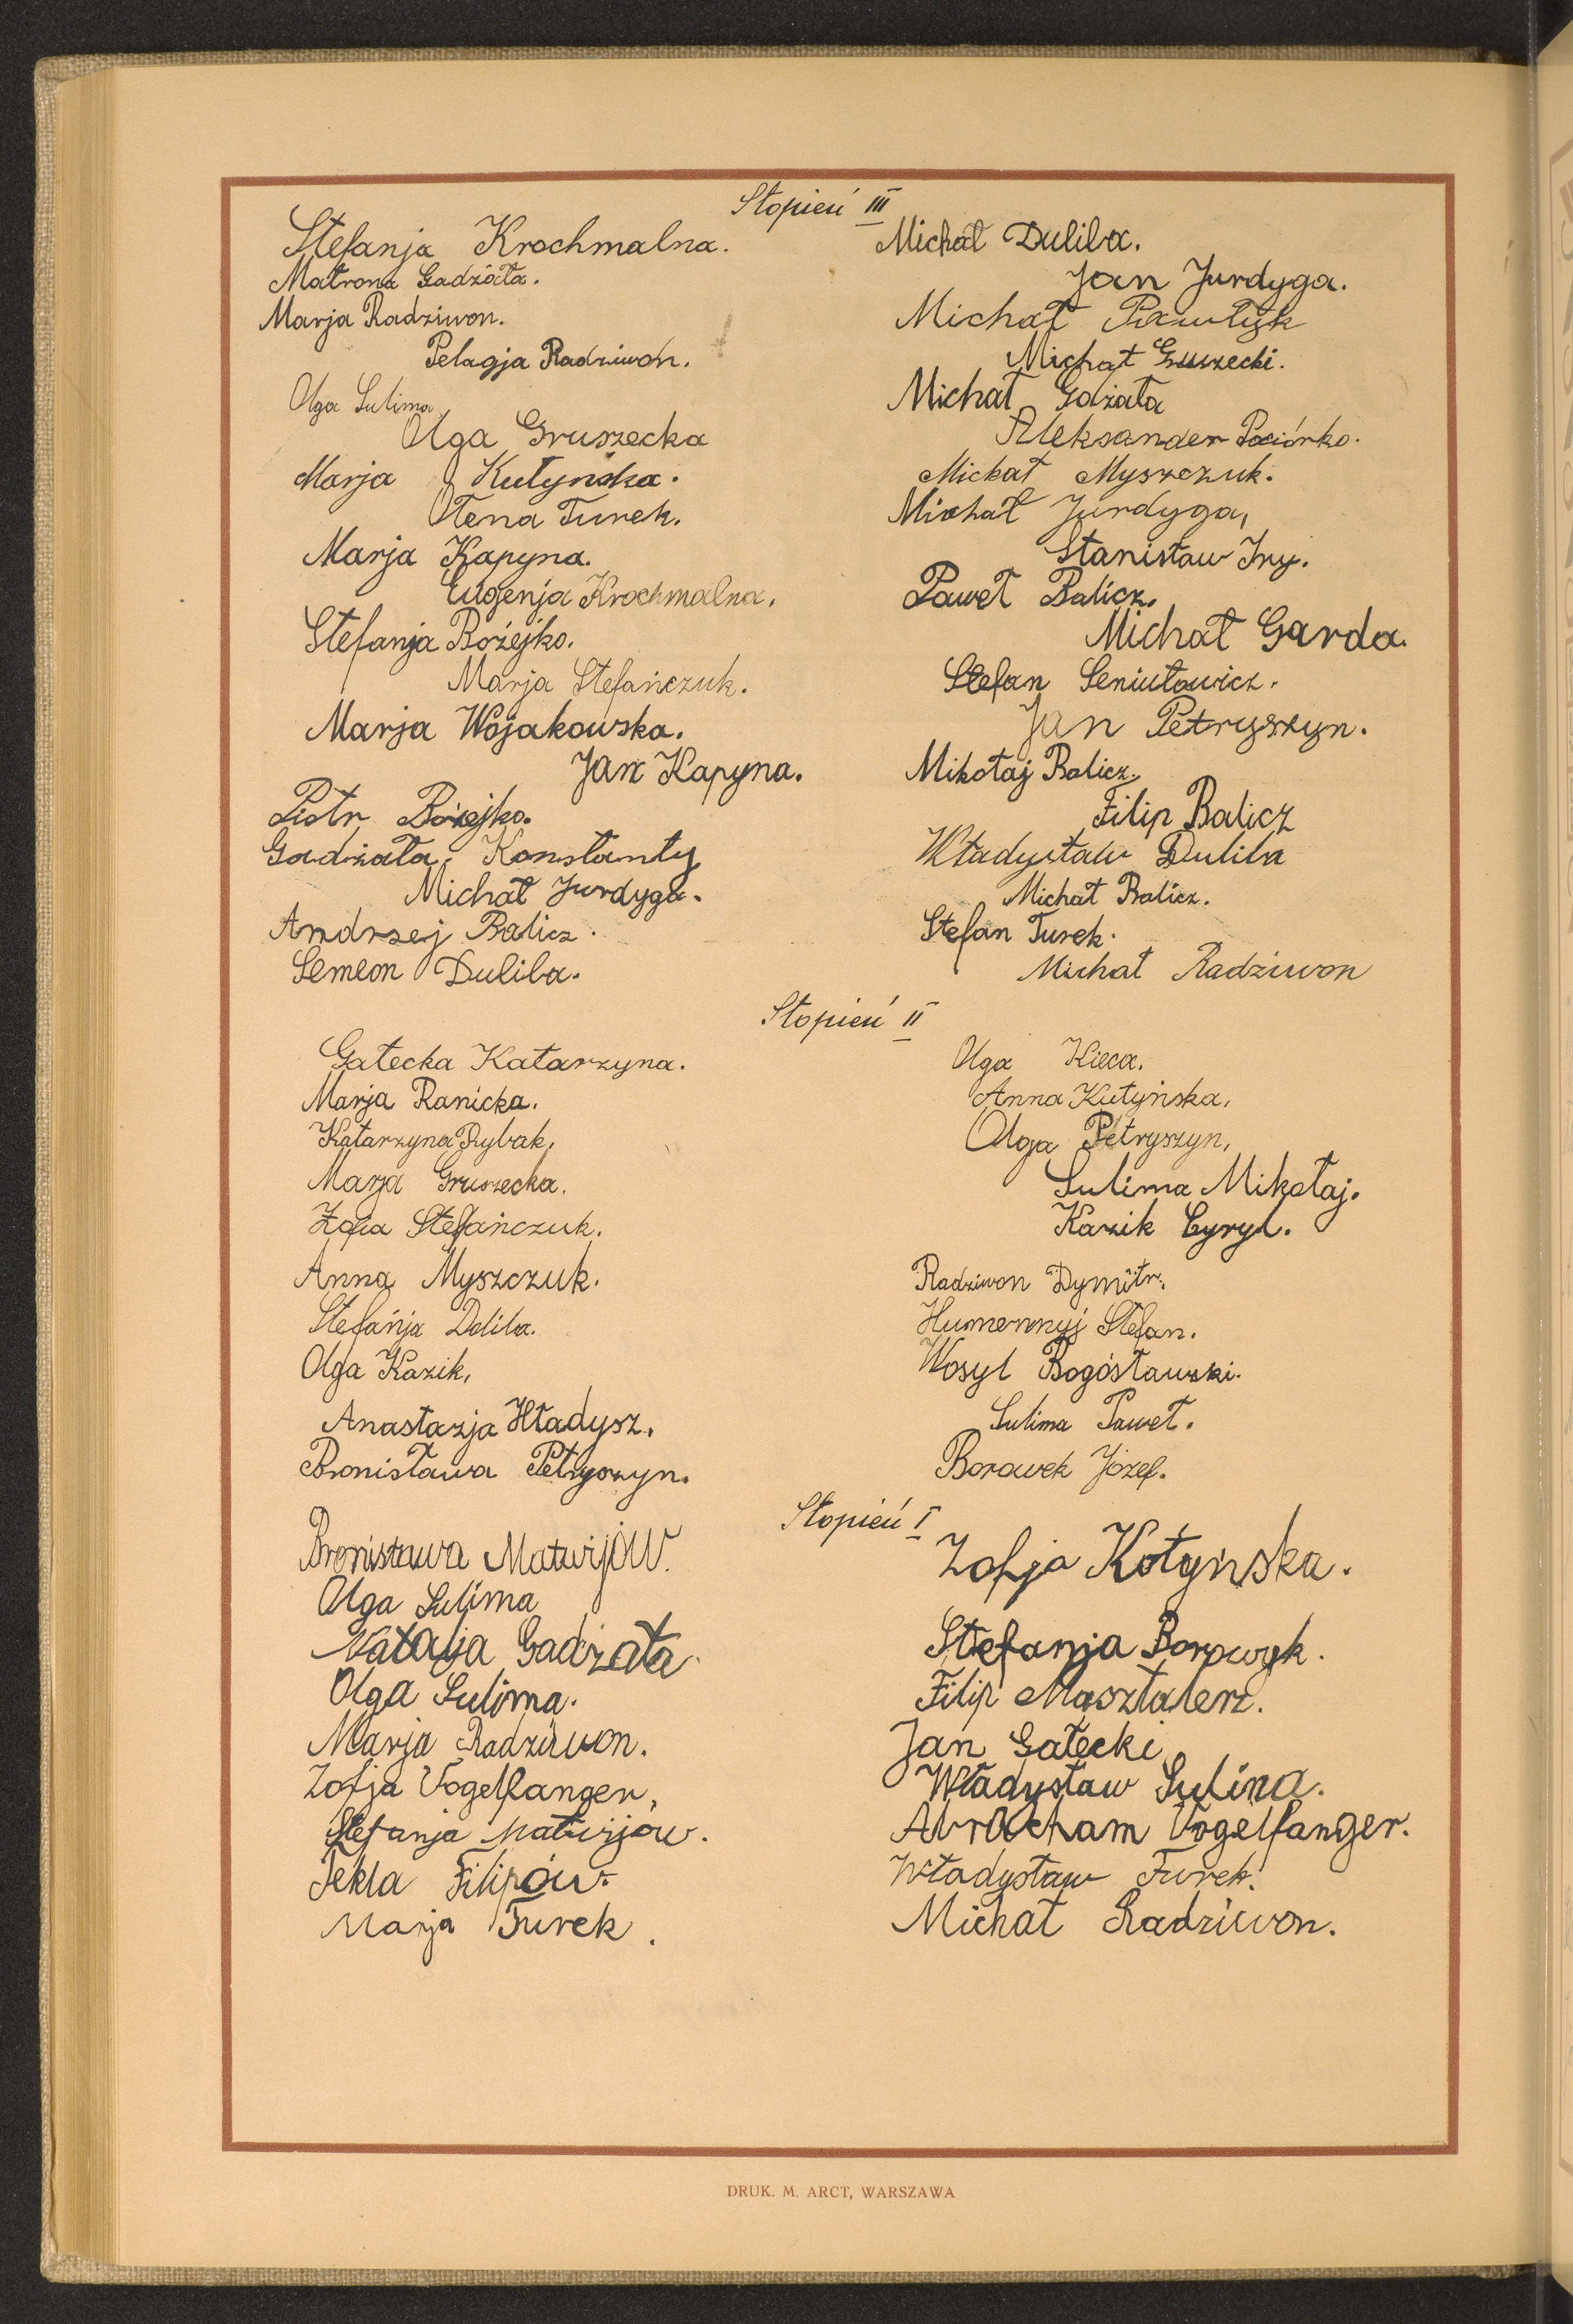 Stopień III
Stefanja Krochmalna.
Matrona Gadżała.
Marja Radziwon.
Pelagja Radziwon.
Olga Sulima.
Olga Gruszecka
Marja Kutyńska.
Ołena Turek.
Marja Kapyna.
Eugenja Krochmalna.
Stefanja Bożejko.
Marja Stefańczuk.
Marja Wojakowska.
Jan Kapyna.
Piotr Bożejko.
Gadżała, Konstanty
Michał Jurdyga.
Andrzej Balicz.
Semeon Duliba.
Michał Duliba.
Jan Jurdyga.
Michał Pawłyk
Michał Gruszecki.
Michał Gażała
Aleksander Paciórko.
Michał Myszczuk.
Michał Jurdyga,
Stanisław Iny.
Paweł Balicz.
Michał Garda.
Stefan Seniutowicz.
Jan Petryszyn.
Mikołaj Balicz.
Filip Balicz
Władysław Duliba
Michał Balicz.
Stefan Turek.
Michał Radziwon
Stopień II
Gałecka Katarzyna.
Marja Ranicka.
Katarzyna Rybak,
Marja Gruszecka.
Zofia Stefańczuk.
Anna Myszczuk.
Stefanja Doliba.
Olga Kazik,
Anastazja Hładysz.
Bronisława Petryszyn.
Olga Kieca.
Anna Kutyńska,
Olga Petryszyn,
Sulima Mikołaj.
Kazik Cyryl.
Radziwon Dymitr.
Humennyj Stefan.
Wosyl Bogósławski.
Sulima Paweł.
Borowek Józef.
Stopień I
Bronisława Matwijów.
Olga Sulima
Natalja Gadżała
Olga Sulima.
Marja Radziwon.
Zofja Vogelfanger,
Stefanja Matwijów.
Tekla Filipów.
Marja Turek.
Zofja Kotyńska.
Stefanja Borowyk.
Filip Masztalerz.
Jan Gałecki
Władysław Sulima.
Abracham Vogelfanger.
Władysław Turek.
Michał Radziwon.
DRUK. M. ARCT, WARSZAWA